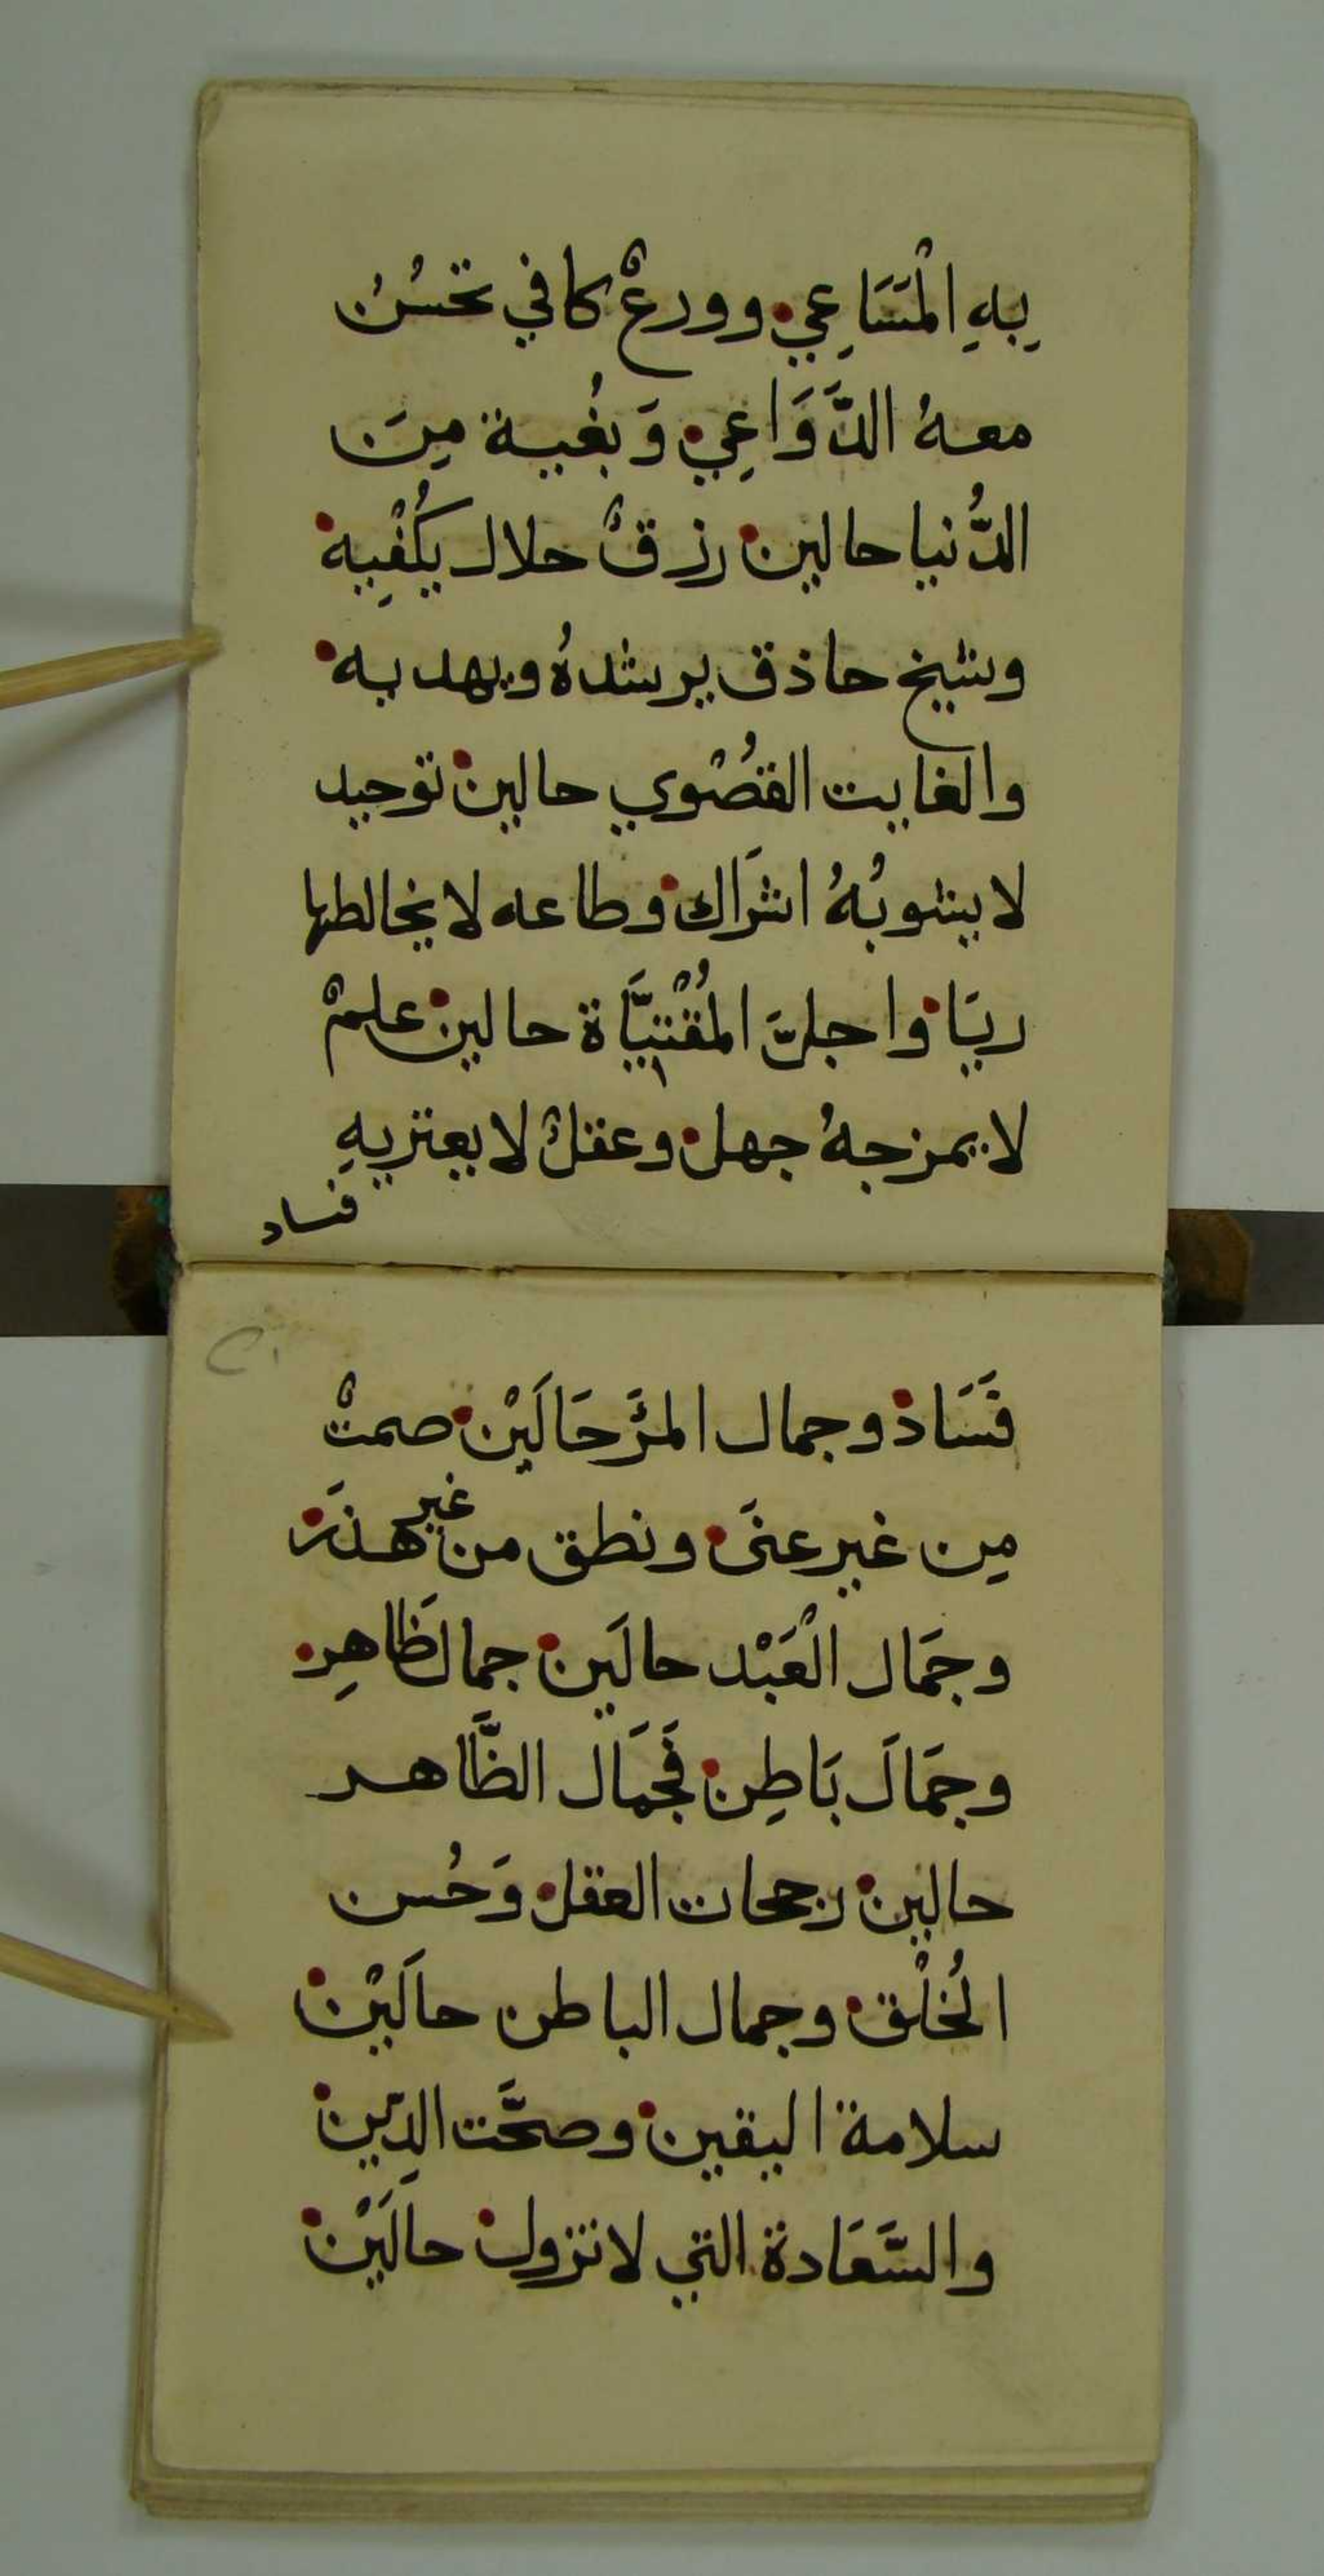 بِهِ الْمَسَاعِي وورعٌ كافي تحسُن
معهُ الدَّوَاعِي وَبُغية مِنَ
الدُّنيا حالين رزقٌ حلال يكُفْيِه
وشيخ حاذق يرشدهُ ويهديه
والغايت القصْوي حالين توحيد
لا يشوبُهُ اشرَاك وطاعه لا يخالطها
ريَا واجلّ المُقْتنيَّاة حالين علمٌ
لا يمزجهُ جهل وعقلٌ لا يعتريهِ
فساد
فَسَاد وجمال المرَءْ حَالَيْن صمتٌ
مِن غير عنَى ونطق من غير هذَر
وجمَال الْعَبْد حالَين جمال ظَاهِر
وجمَالَ بَاطِن فجمَالُ الظَّاهر
حالين رجحان العقل وَحُسن
الخُلْق وجمال الباطن حالَيْن
سلامة اليقين وصحَّت الدِّين
والسَّعَادة التي لا تزول حالَيْن